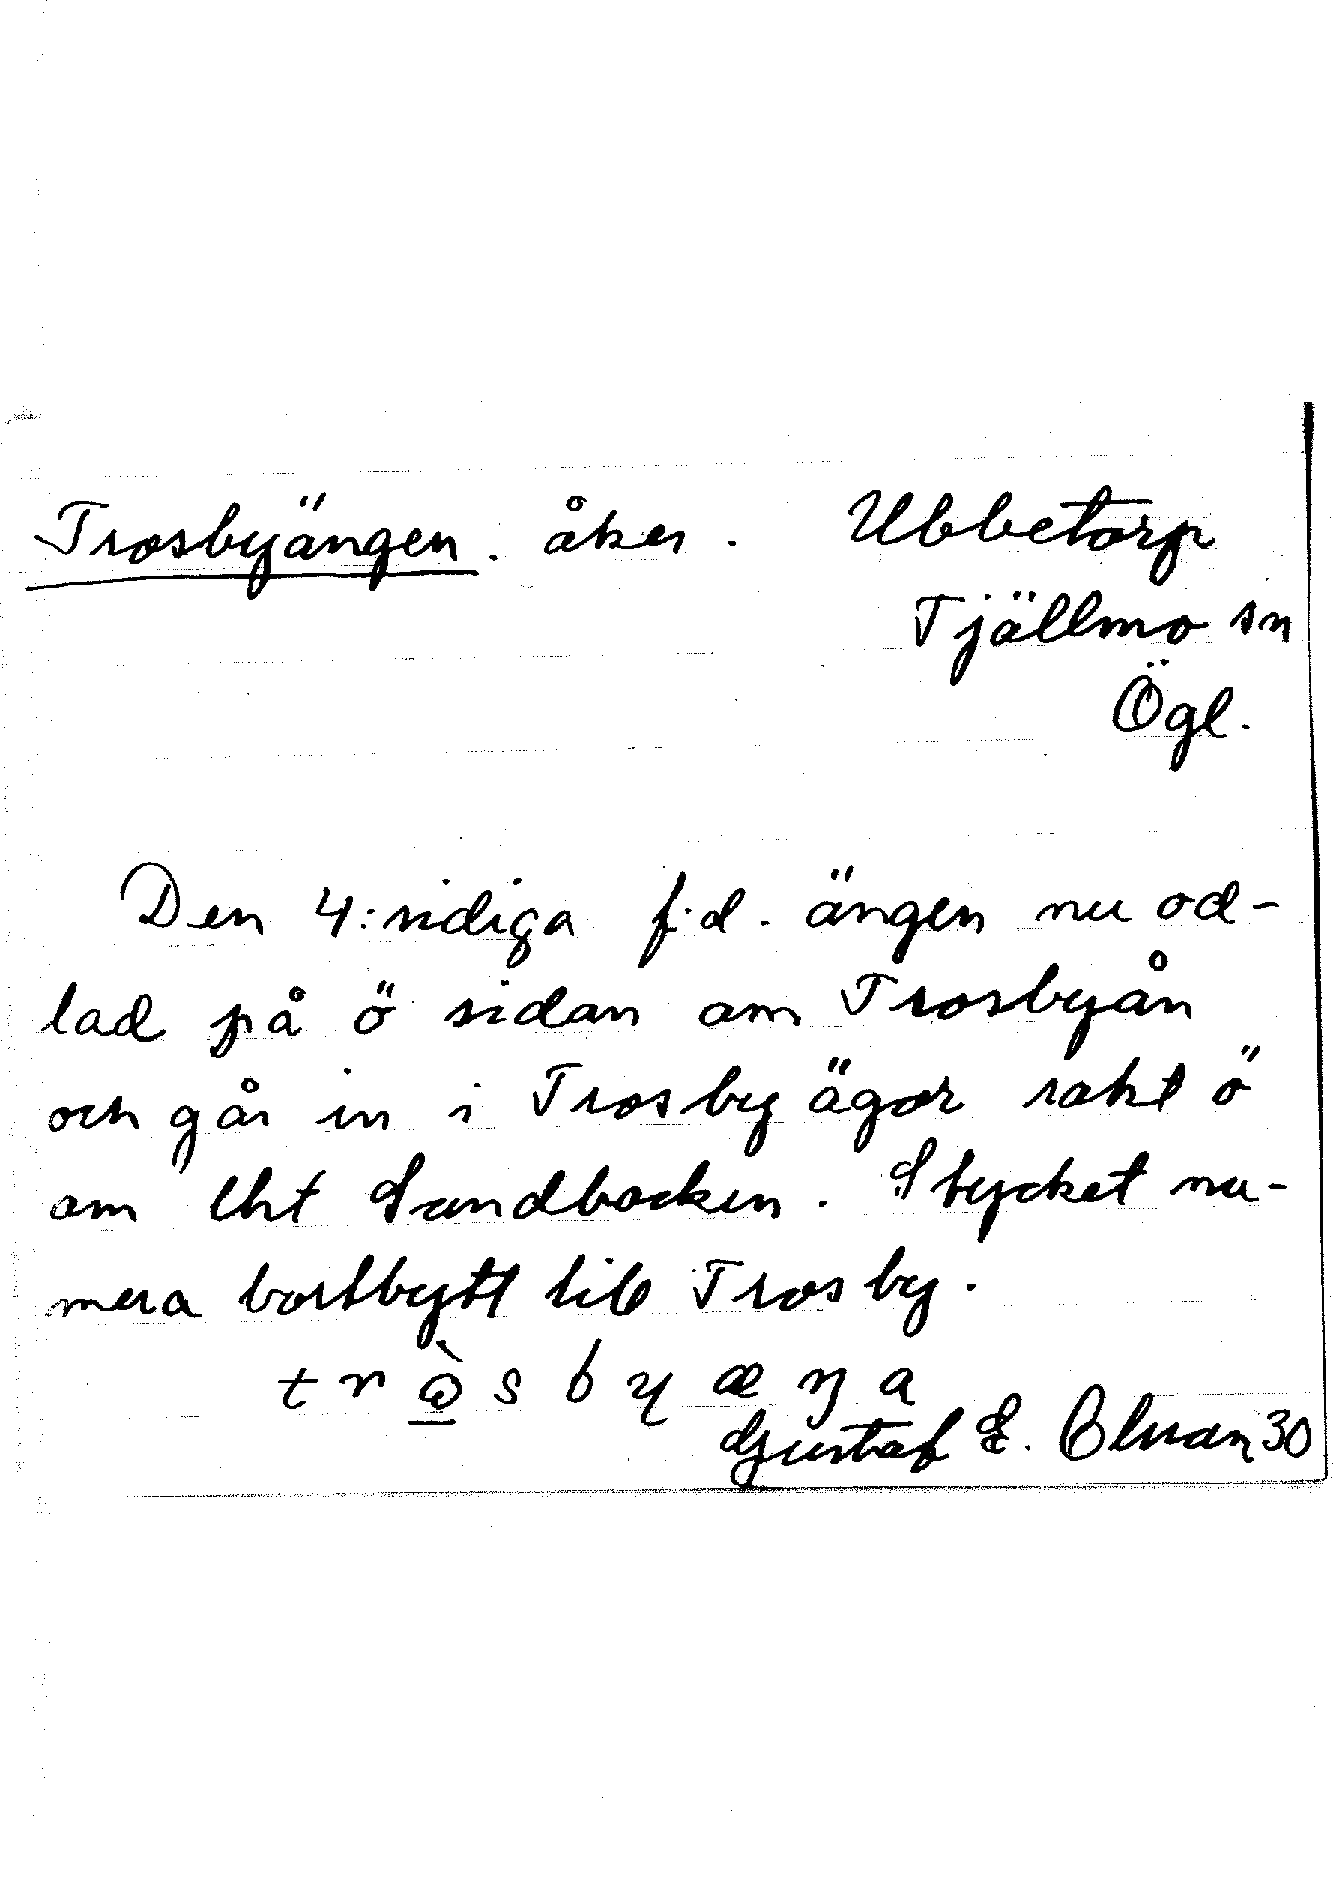 Trosbyängen. åker. Ubbetorp
Tjällmo sn
Ögl.
Den 4:sidiga f.d. ängen nu od-
lad på ö sidan om Trosbyån
och går in i Trosby ägor rakt ö
om Lht Sandbacken. Stycket nu-
mera bortbytt till Trosby.
Gustaf E. Olsson 30